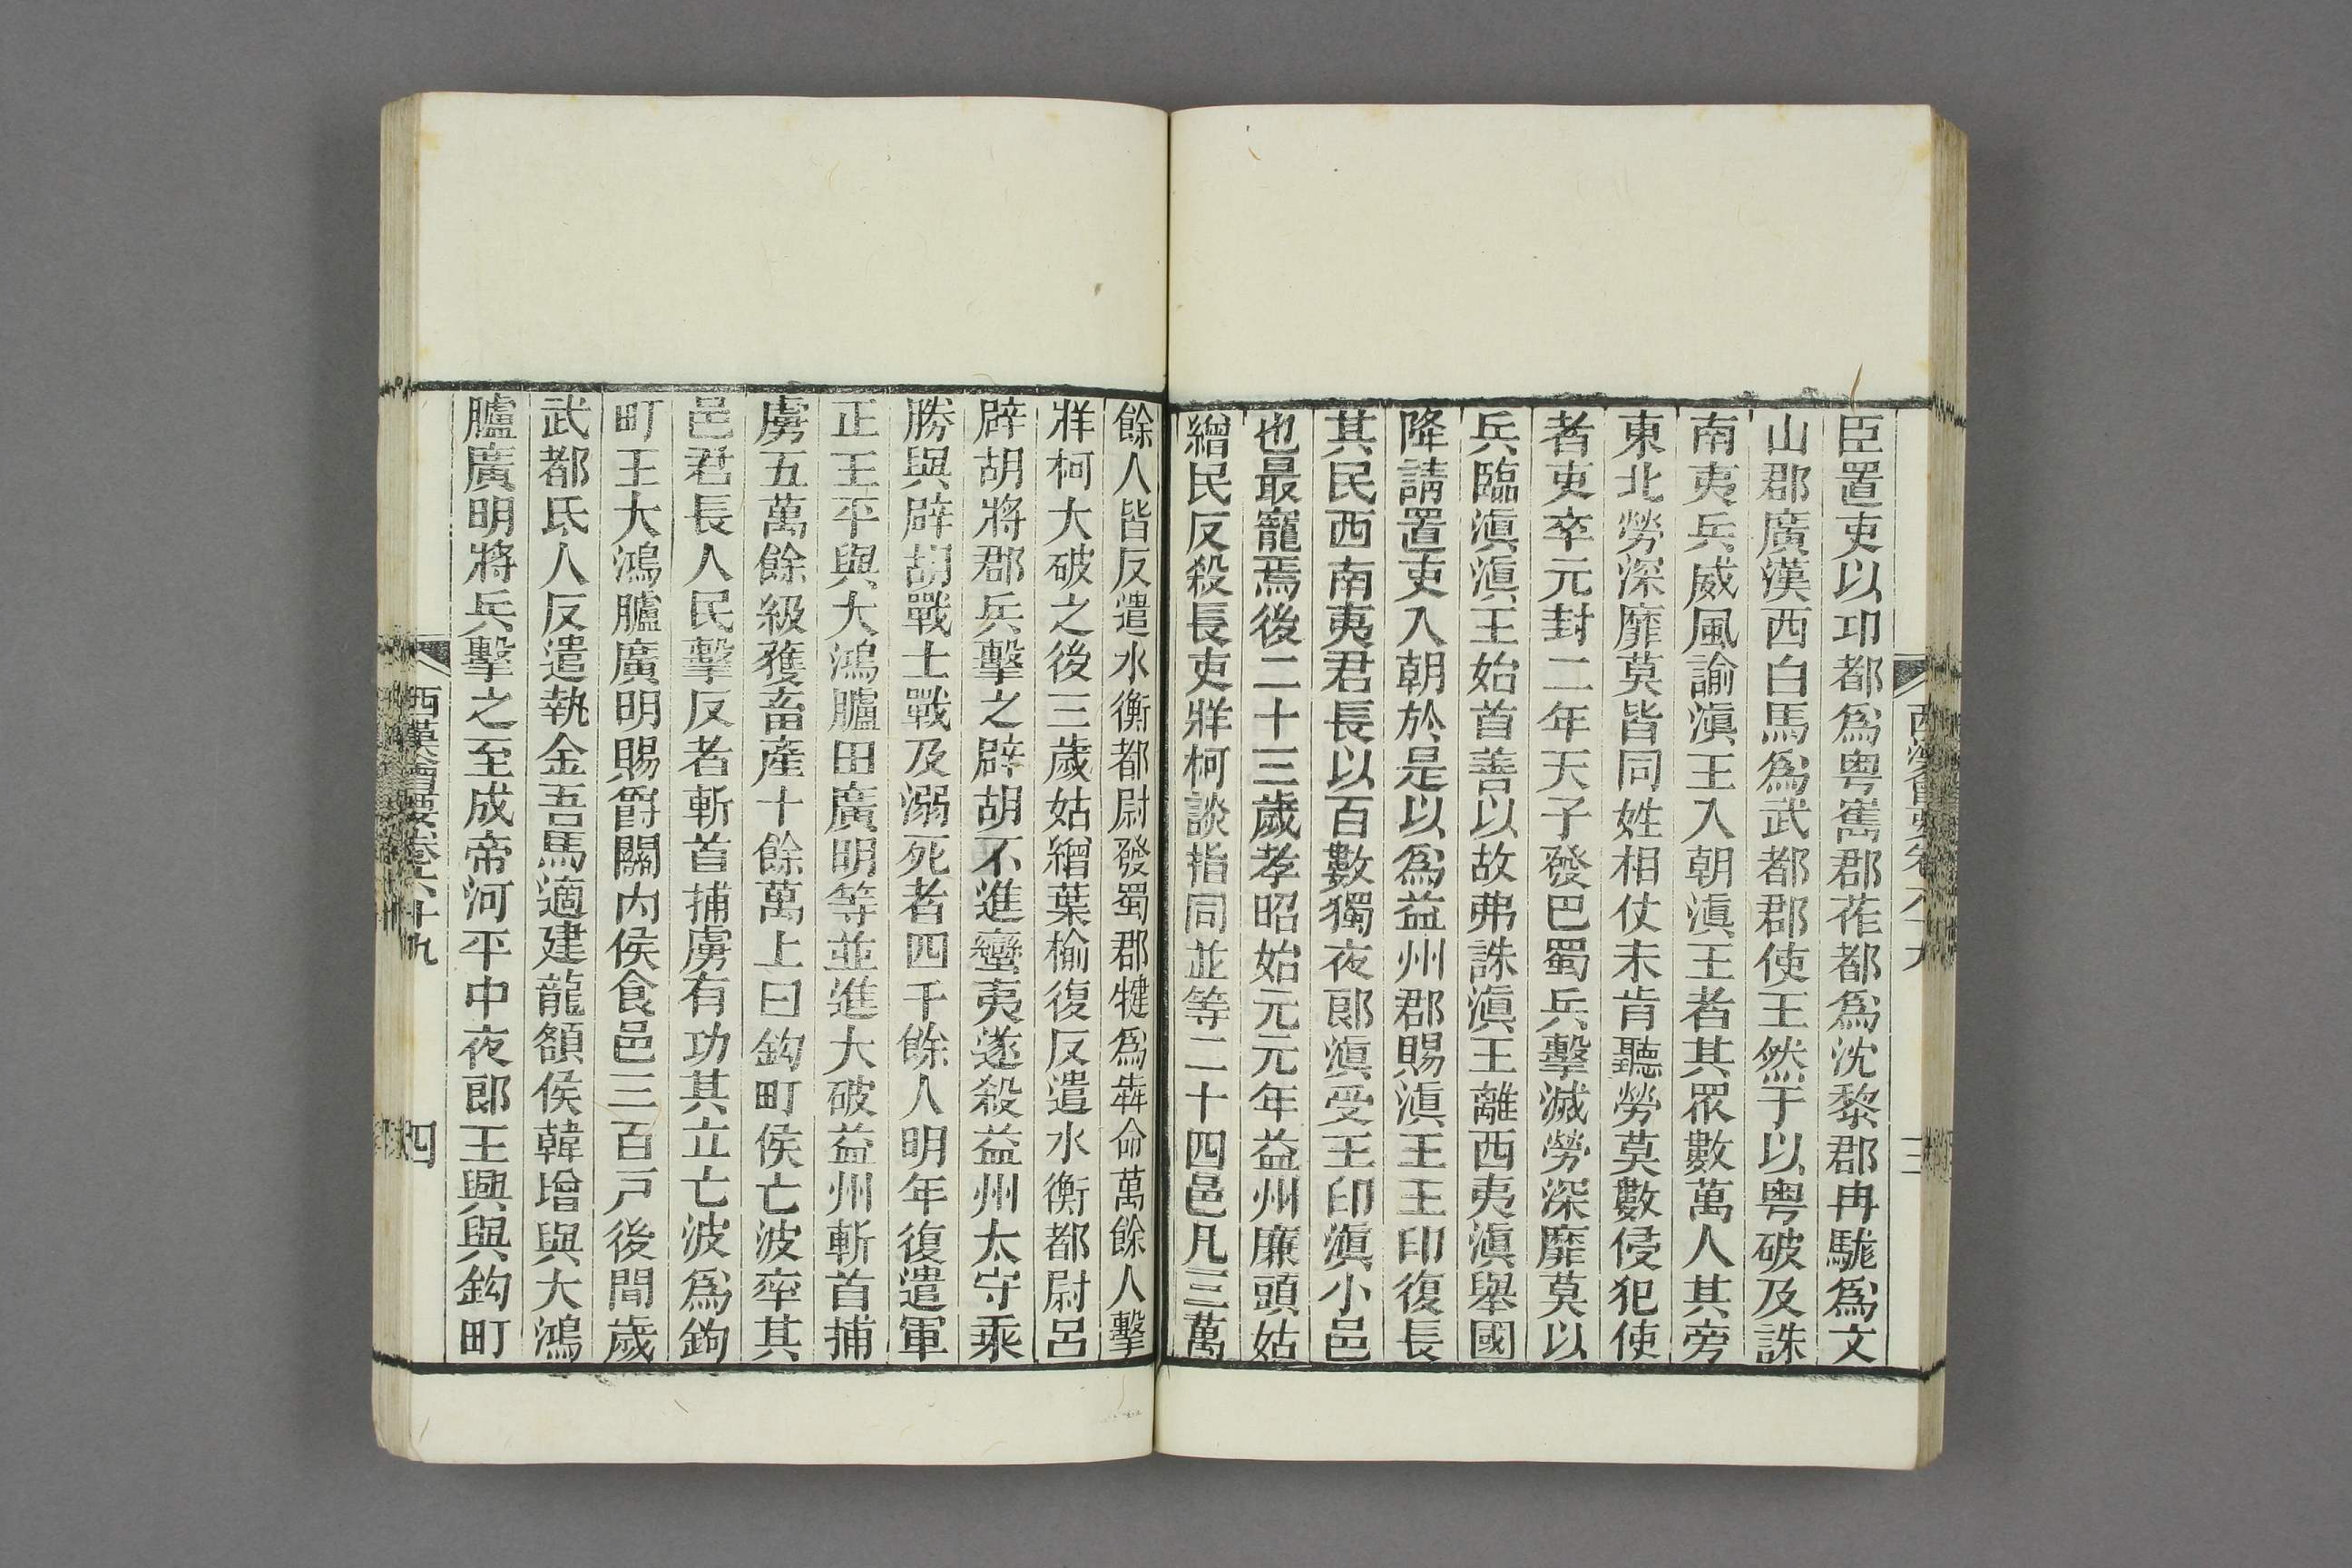 臣置吏以邛都爲粤巂郡莋都爲沈黎郡冉駹爲文
山郡廣漢西白馬爲武都郡使王然于以粤破及誅
南夷兵威風諭滇王入朝滇王者其眾數萬人其旁
東北勞深靡莫皆同姓相仗未肯聽勞莫數侵犯使
者吏卒元封二年天子發巴蜀兵擊滅勞深靡莫以
兵臨滇滇王始首善以故弗誅滇王離西夷滇舉國
降請置吏入朝於是以爲益州郡賜滇王王印復長
其民西南夷君長以百數獨夜郎滇受王印滇小邑
也最寵焉後二十三歲孝昭始元元年益州廉頭姑
繒民反殺長吏牂柯談指同並等二十四邑凡三萬
餘人皆反遣水衡都尉發蜀郡犍爲犇命萬餘人擊
牂柯大破之後三歲姑繒葉榆復反遣水衡都尉呂
辟胡將郡兵擊之辟胡不進蠻夷遂殺益州太守乘
勝與辟胡戰士戰及溺死者四千餘人明年復遣軍
正王平與大鴻臚田廣明等並進大破益州斬首捕
虜五萬餘級獲畜產十餘萬上曰鉤町侯亡波率其
邑君長人民擊反者斬首捕虜有功其立亡波爲鉤
町王大鴻臚廣明賜爵關內侯食邑三百戸後間歲
武都氐人反遣執金吾馬適建龍頟侯韓增與大鴻
臚廣明將兵擊之至成帝河平中夜郎王興與鉤町
西漢會要卷六十九
四